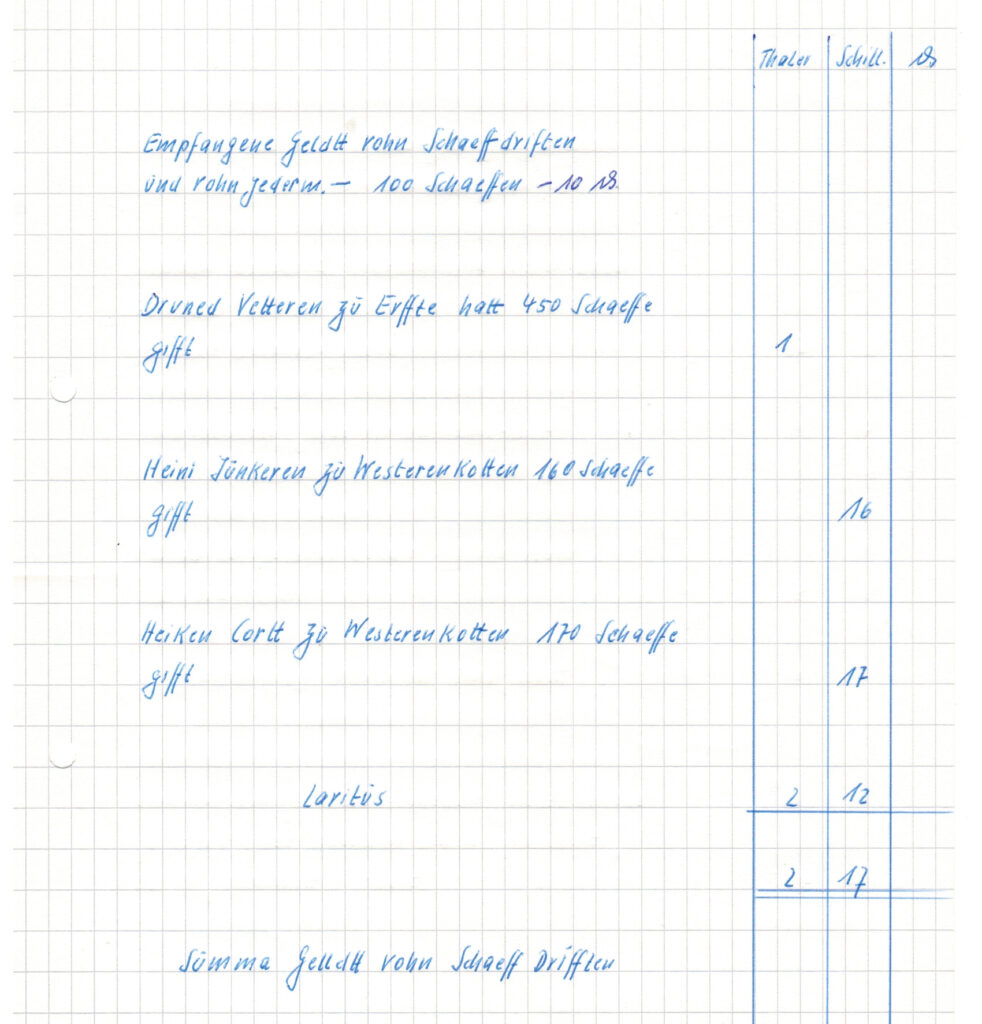 Thaler Schill. ₰
Empfangene Geldtt vohn Schaeffdriften
und vohn jederm. – 100 Schaeffen – 10 ₰.
Druned Vetteren zu Erffte hatt 450 Schaeffe
gifft 1
Heini Jünkeren zu Westerenkotten 160 Schaeffe
gifft 16
Heiken Cortt zu Westerenkotten 170 Schaeffe
gifft 17
Laritus 2 12
2 17
Summa Gelldtt vohn Schaeff Drifften